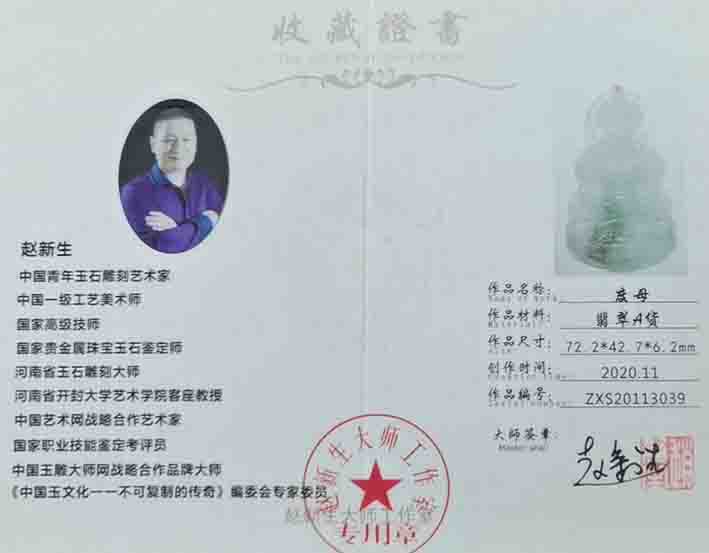 收藏證書
赵新生
中国青年玉石雕刻艺术家
中国一级工艺美术师
国家高级技师
国家贵金属珠宝玉石鉴定师
河南省玉石雕刻大师
河南省开封大学艺术学院客座教授
中国艺术网战略合作艺术家
国家职业技能鉴定考评员
中国玉雕大师网战略合作品牌大师
《中国玉文化一一不可复制的传奇》编委会专家委员
作品名称: 度母
Name of Work
作品材料: 翡翠A货
Material
作品尺寸: 72.2*42.7*6.2mm
Size
创作时间: 2020.11
Creation time
作品编号: ZXS20113039
Serial number
大师签章:
Master seal
赵新生
赵新生大师工作室
专用章
赵新生大师工作室